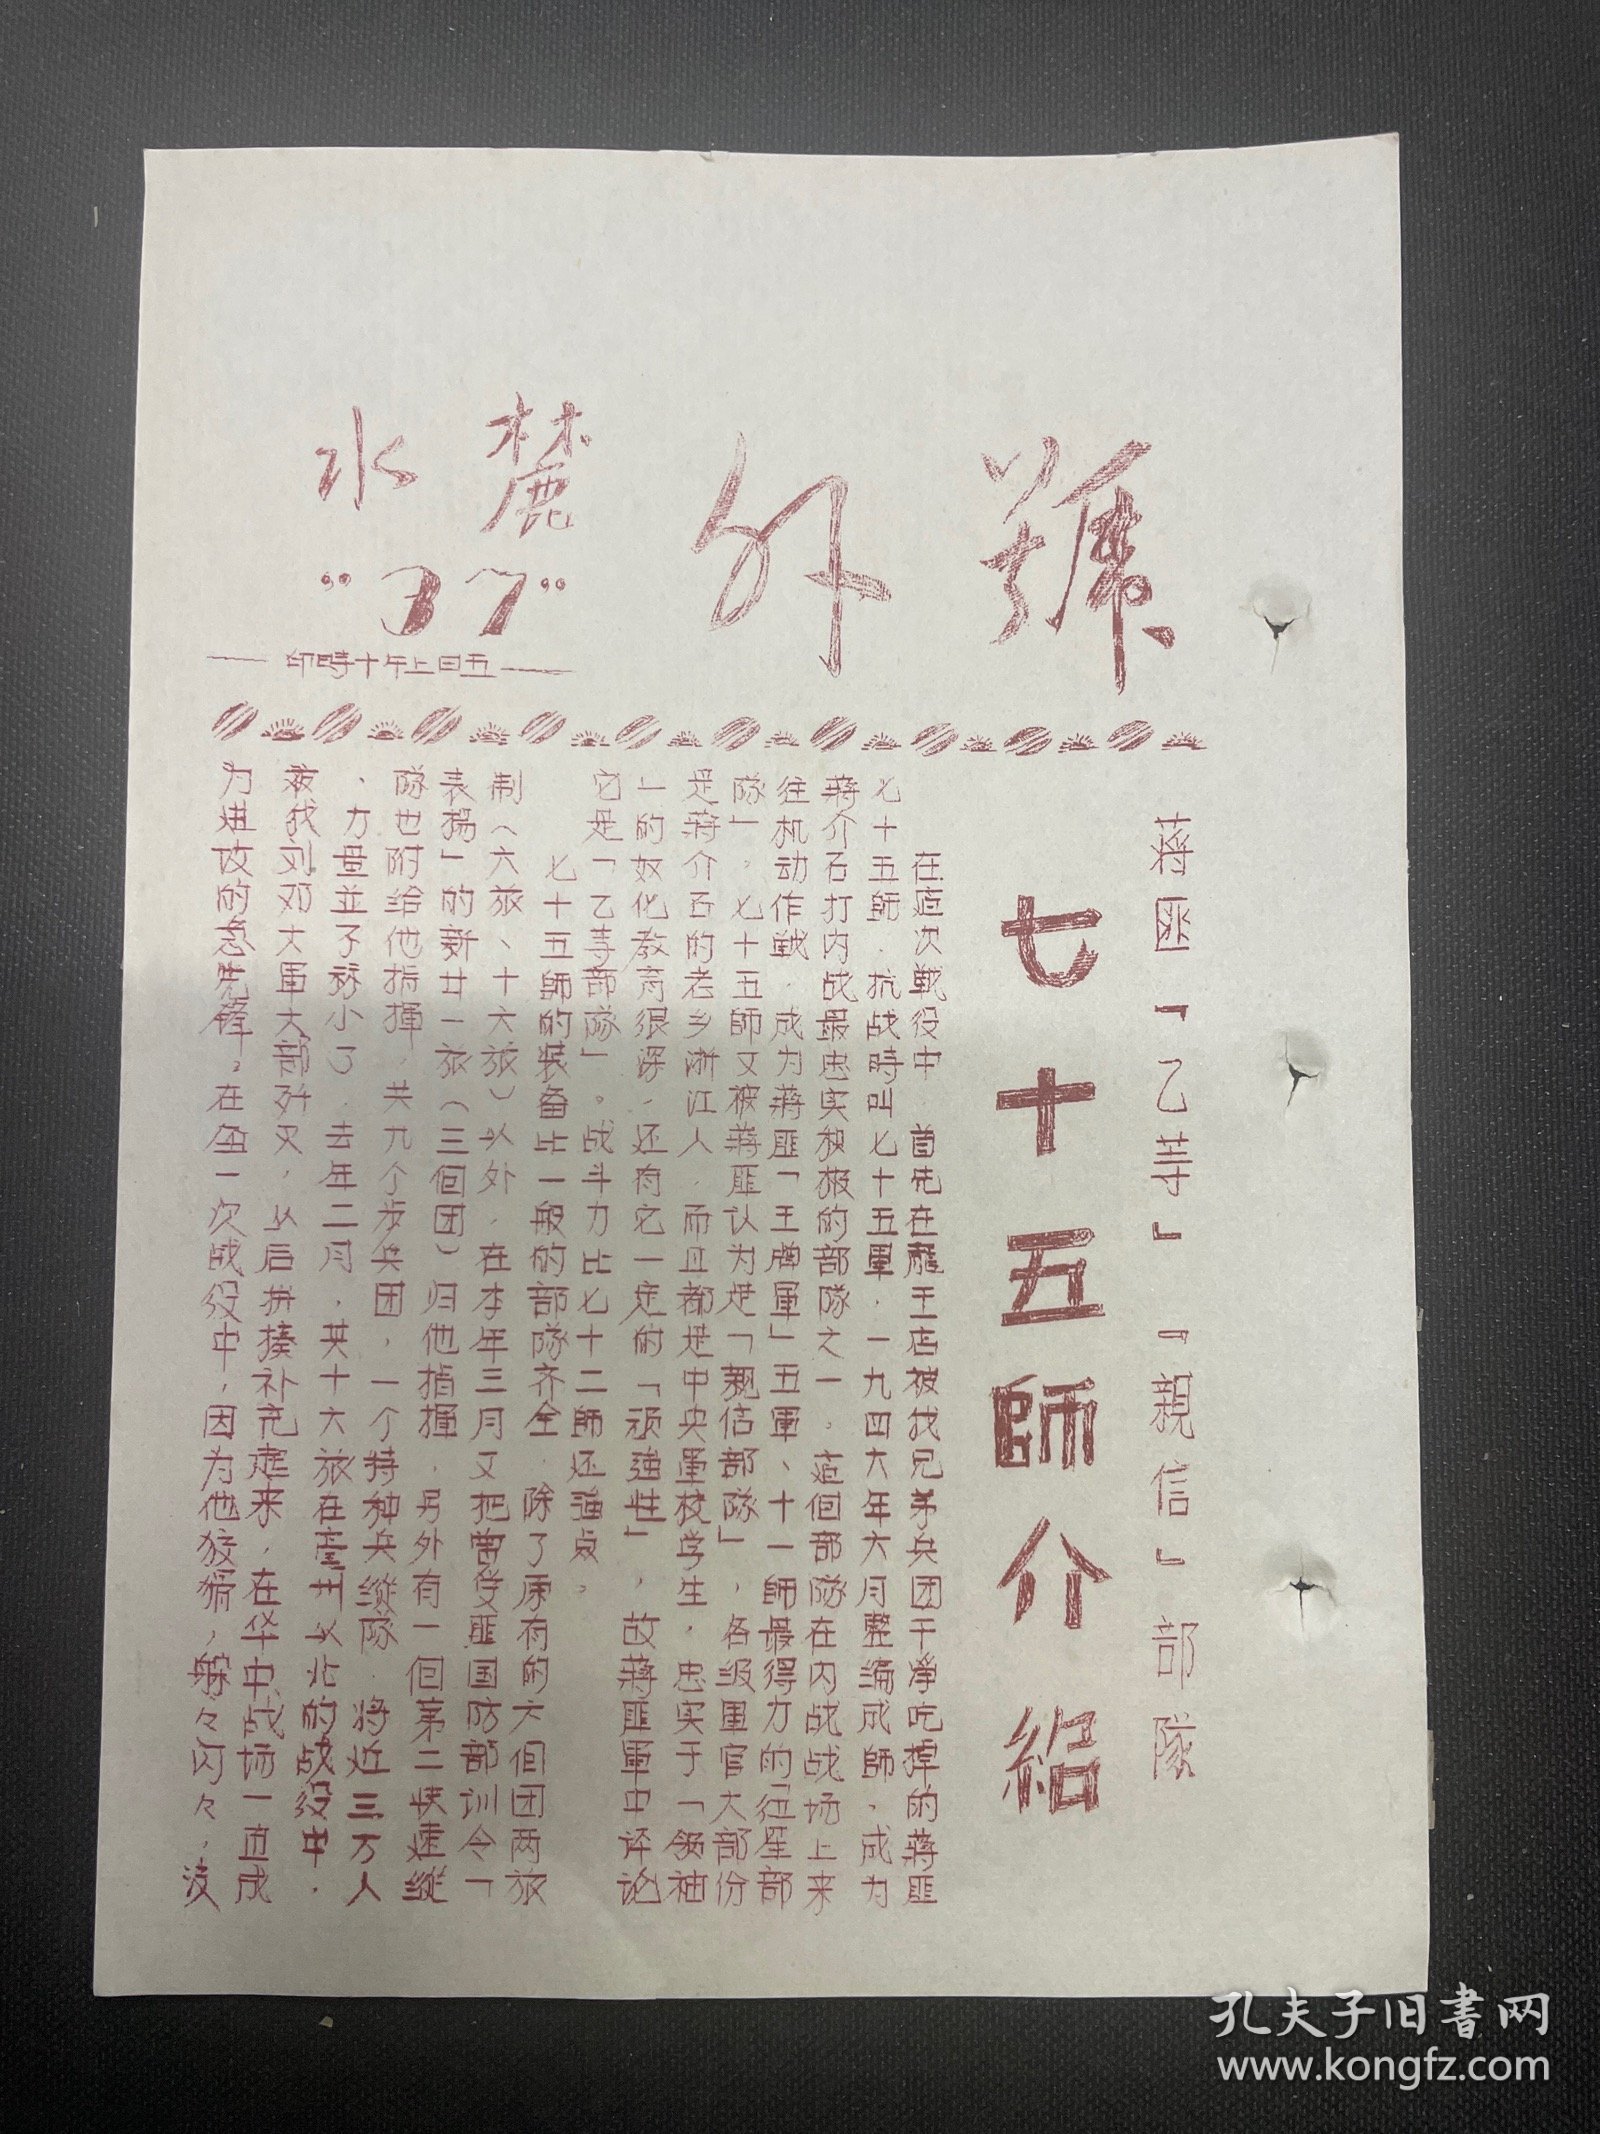 號外
麓水
"37"
五日上午十時印
蔣匪「乙等」『親信』部隊
七十五師介紹
在這次戰役中．首先在龍王店被我兄弟兵团干淨吃掉的蔣匪
七十五師．抗战時叫七十五軍．一九四六年六月整编成師．成为
蔣介石打内战最忠实积极的部隊之一．這個部隊在内战战场上来
往机动作戰．成为蔣匪「王牌軍」五軍、十一師最得力的「衛星部
隊」．七十五師又被蔣匪认为是「親信部隊」，各级軍官大部份
是蔣介石的老乡浙江人．而且都是中央軍校学生．忠实于「领袖
」的奴化教育很深．还有它一定的「頑強性」，故蔣匪軍中评论
它是「乙等部隊」。战斗力比七十二師还強点。
七十五師的裝备比一般的部隊齐全．除了原有的六個团两旅
制（六旅、十六旅）以外．在本年三月又把曾受匪国防部训令「
表揚」的新廿一旅（三個团）归他指揮．另外有一個第二快速縱
隊也附给他指揮．共九个步兵团，一个特种兵縱隊．将近三万人
、力量並不称小了．去年二月．其十六旅在亳州以北的战役中．
被我刘邓大軍大部歼灭，以后拼揍补充起来．在华中战场一直成
为進攻的急先鋒。在每一次战役中，因为他狡猾，躲々闪々，没
孔夫子旧書网
www.kongfz.com